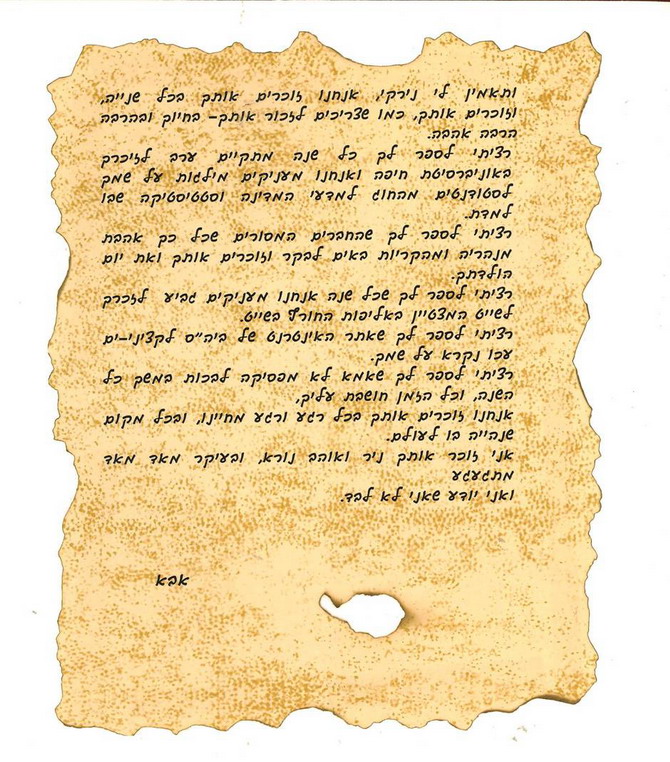 ותאמין לי נירקי, אנחנו זוכרים אותך בכל שנייה,
וזוכרים אותך, כמו שצריכים לזכור אותך- בחיוך ובהרבה
הרבה אהבה.
רציתי לספר לך כל שנה מתקיים ערב לזיכרך
באוניברסיטת חיפה ואנחנו מעניקים מילגות על שמך
לסטודנטים מהחוג למדעי המדינה וסטטיסטיקה שבו
למדת.
רציתי לספר לך שהחברים המסורים שכל כך אהבת
מנהריה ומהקריות באים לבקר וזוכרים אותך ואת יום
הולדתך.
רציתי לספר לך שכל שנה אנחנו מעניקים גביע לזכרך
לשייט המצטיין באליפות החורף בשייט.
רציתי לספר לך שאתר האינטרנט של ביה"ס לקציני-ים
עכו נקרא על שמך.
רציתי לספר לך שאמא לא מפסיקה לבכות במשך כל
השנה, וכל הזמן חושבת עליך,
אנחנו זוכרים אותך בכל רגע ורגע מחיינו, ובכל מקום
שנהייה בו לעולם.
אני זוכר אותך ניר ואוהב נורא, ובעיקר מאד מאד
מתגעגע
ואני יודע שאני לא לבד.
אבא